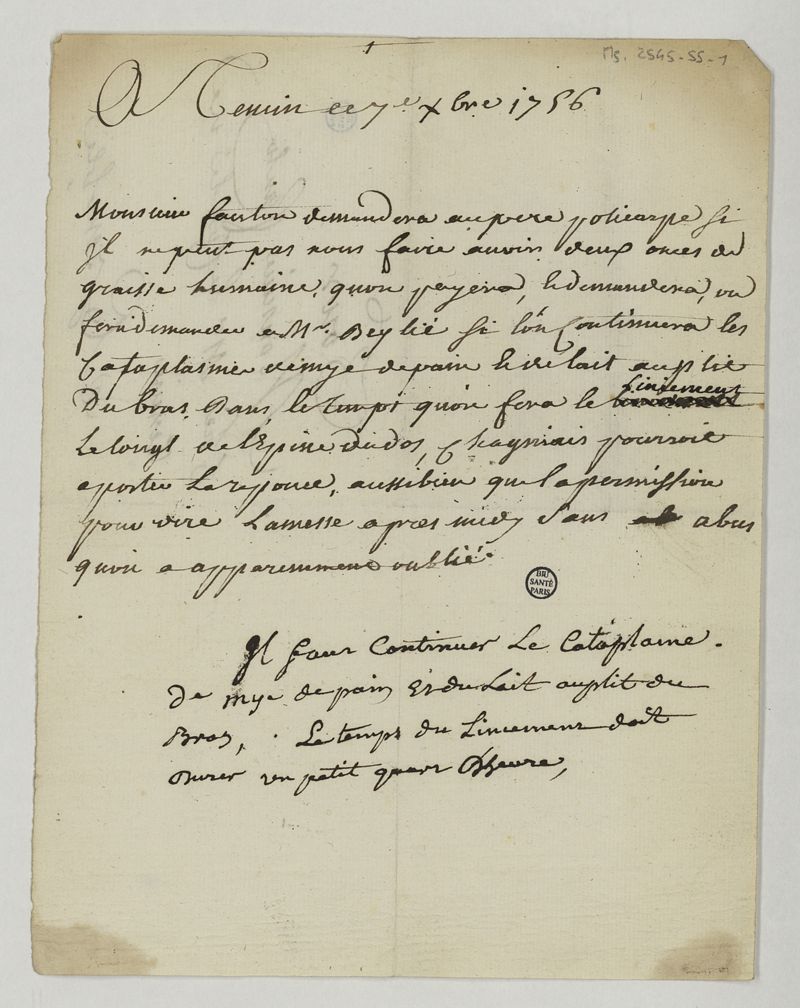 Ms. 2545-55-1
A ce 7e xbre 1756
Monsieur demandera au pere policarpe si
jl ne peut pas nous faire avoir deux onces de
graisse humaine, qu'on payera, le demandera, ou
fera demander a Mr. Beylié si l'on Continuera les
Cataplasme de mye de pain & de lait au plit
Du bras, Dans le temps qu'on fera le Liniement
Le long de l'Epine du dos, pourroit
aporter La reponce, aussi bien que la permission
pour dire La messe apres midy sans abus
qu'on a apparemment oublié.
BIU
SANTÉ
PARIS
Jl faut Continuer Le Cataplame.
De mye de pain Et du Lait au plit du
Bras, . Le temps du Liniement doit
Durer un petit quart D'heure,